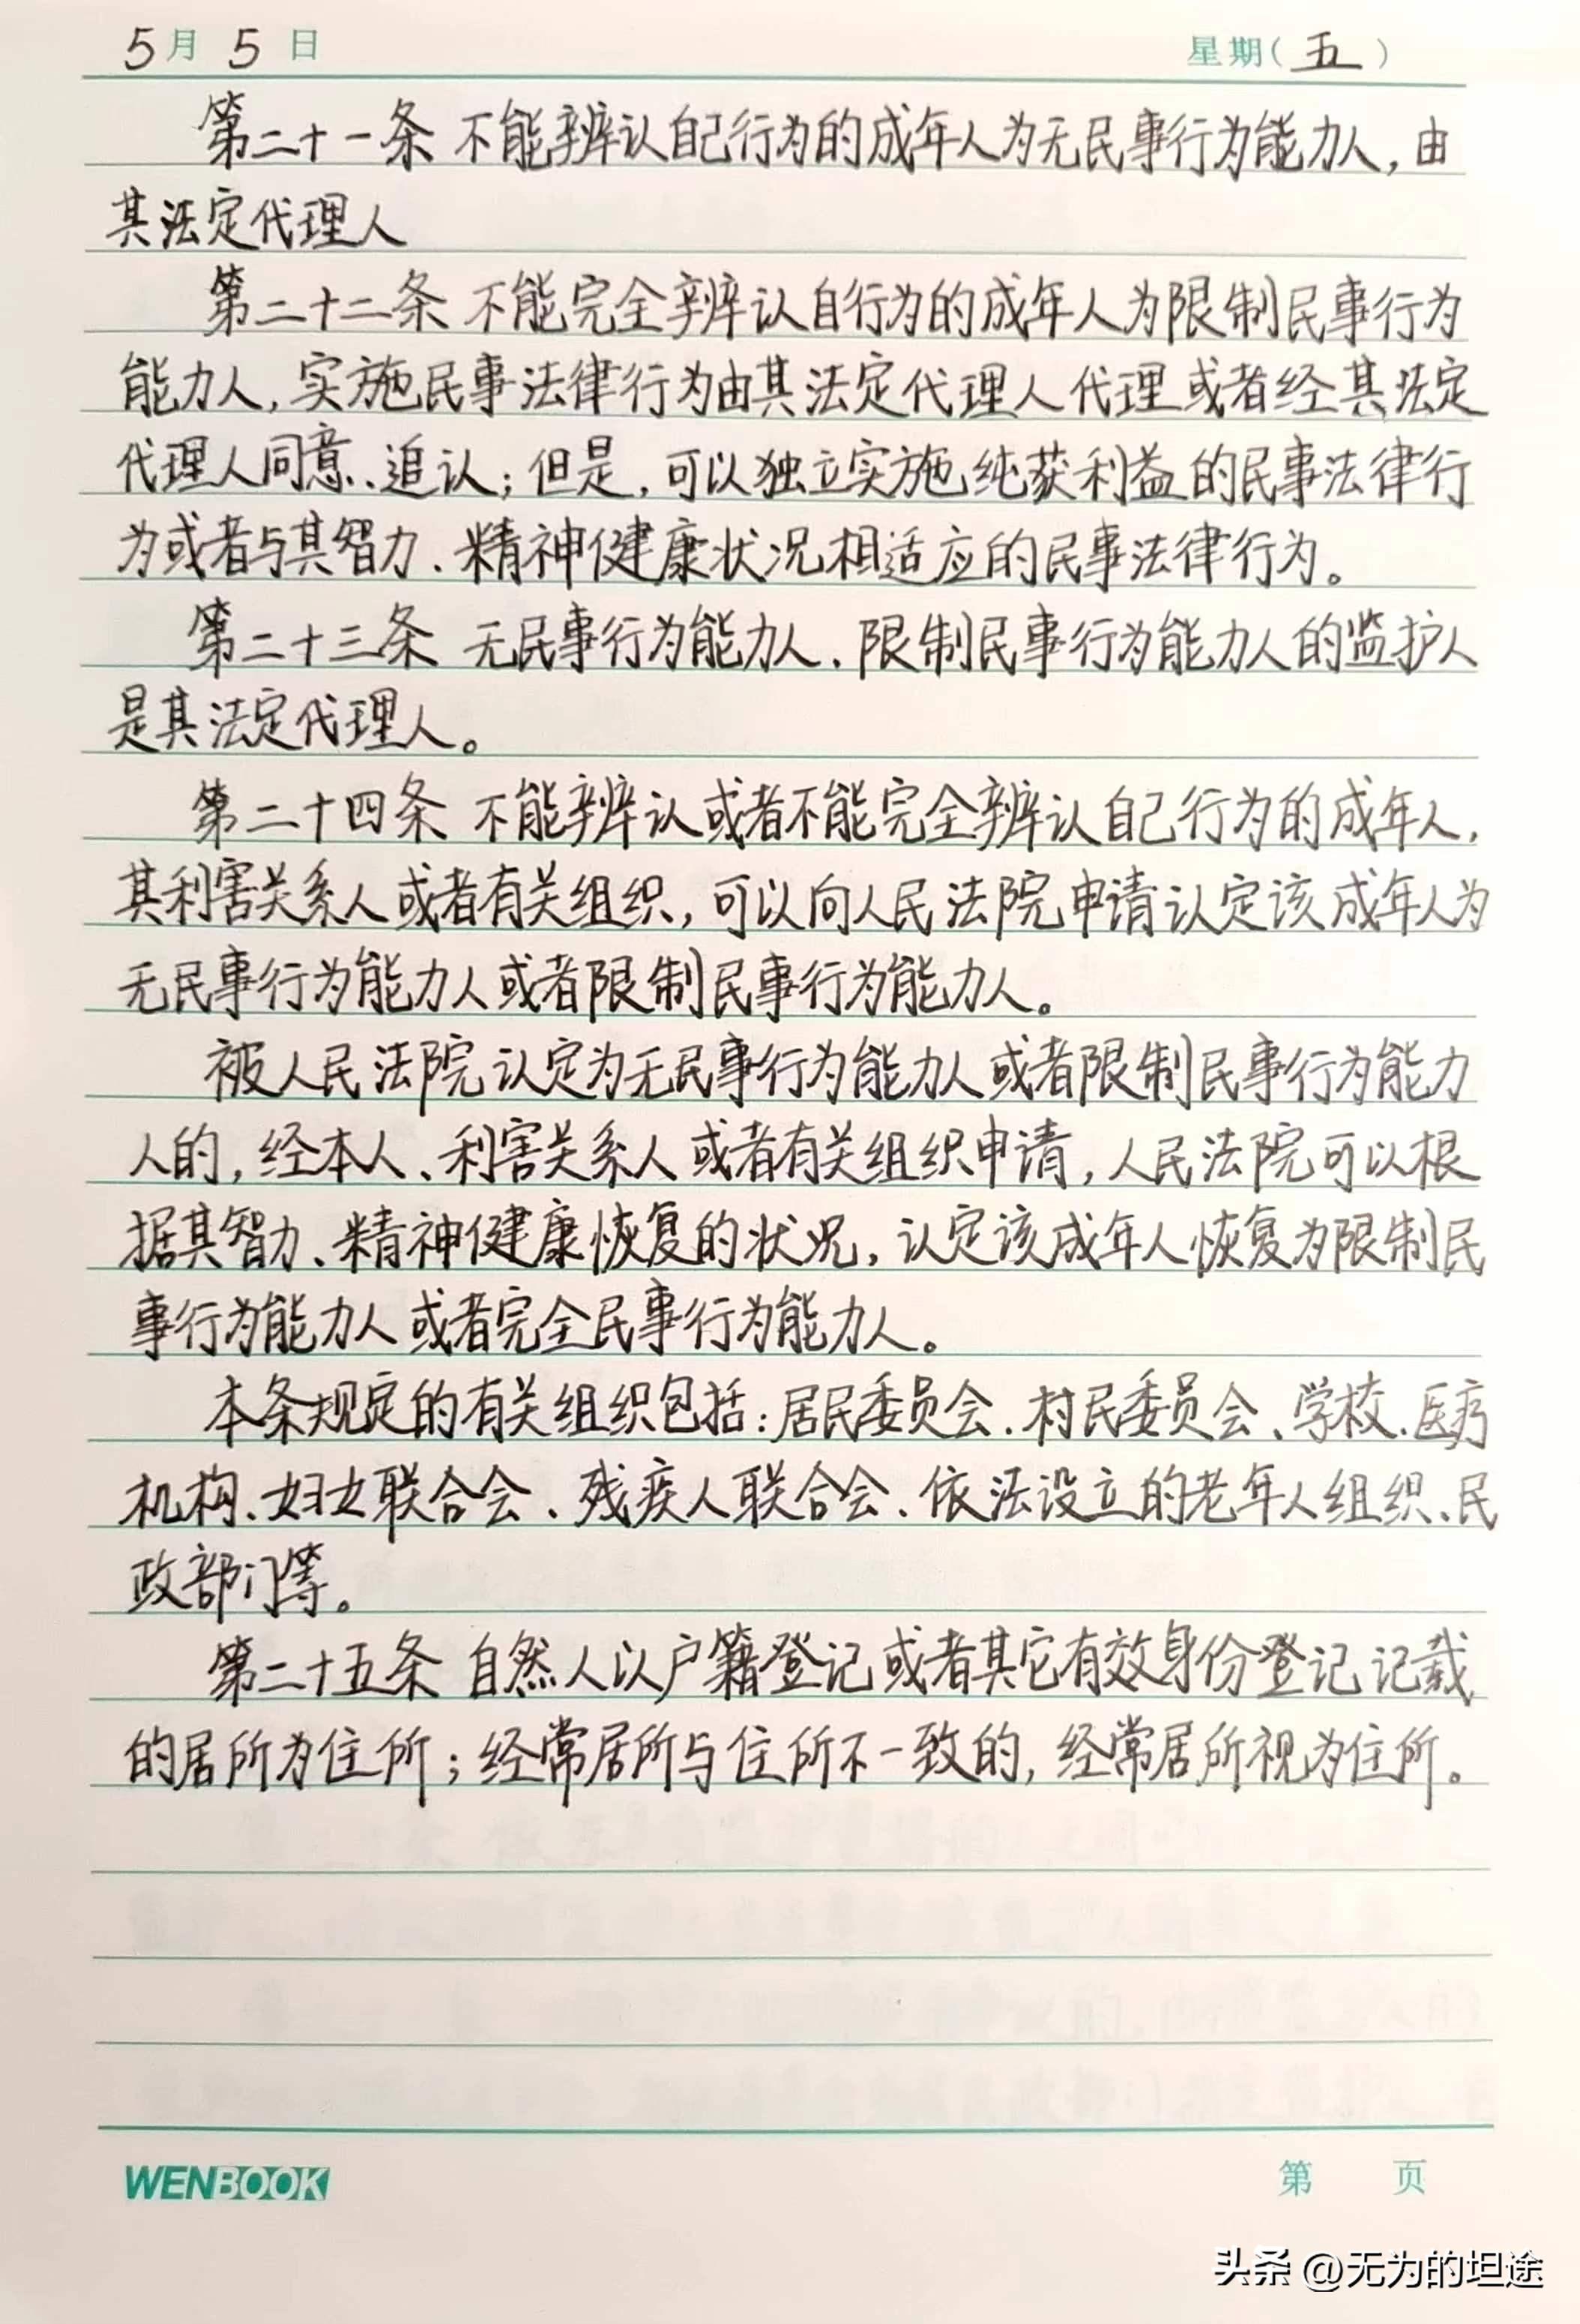 5月5日 星期(五)
第二十一条 不能辨认自己行为的成年人为无民事行为能力人,由
其法定代理人
第二十二条 不能完全辨认自行为的成年人为限制民事行为
能力人,实施民事法律行为由其法定代理人代理或者经其法定
代理人同意、追认;但是,可以独立实施纯获利益的民事法律行
为或者与其智力、精神健康状况相适应的民事法律行为。
第二十三条 无民事行为能力人、限制民事行为能力人的监护人
是其法定代理人。
第二十四条 不能辨认或者不能完全辨认自己行为的成年人,
其利害关系人或者有关组织,可以向人民法院申请认定该成年人为
无民事行为能力人或者限制民事行为能力人。
被人民法院认定为无民事行为能力人或者限制民事行为能力
人的,经本人、利害关系人或者有关组织申请,人民法院可以根
据其智力、精神健康恢复的状况,认定该成年人恢复为限制民
事行为能力人或者完全民事行为能力人。
本条规定的有关组织包括:居民委员会、村民委员会、学校、医疗
机构、妇女联合会、残疾人联合会、依法设立的老年人组织、民
政部门等。
第二十五条 自然人以户籍登记或者其它有效身份登记记载
的居所为住所;经常居所与住所不一致的,经常居所视为住所。
WENBOOK 第 页
头条 @无为的坦途